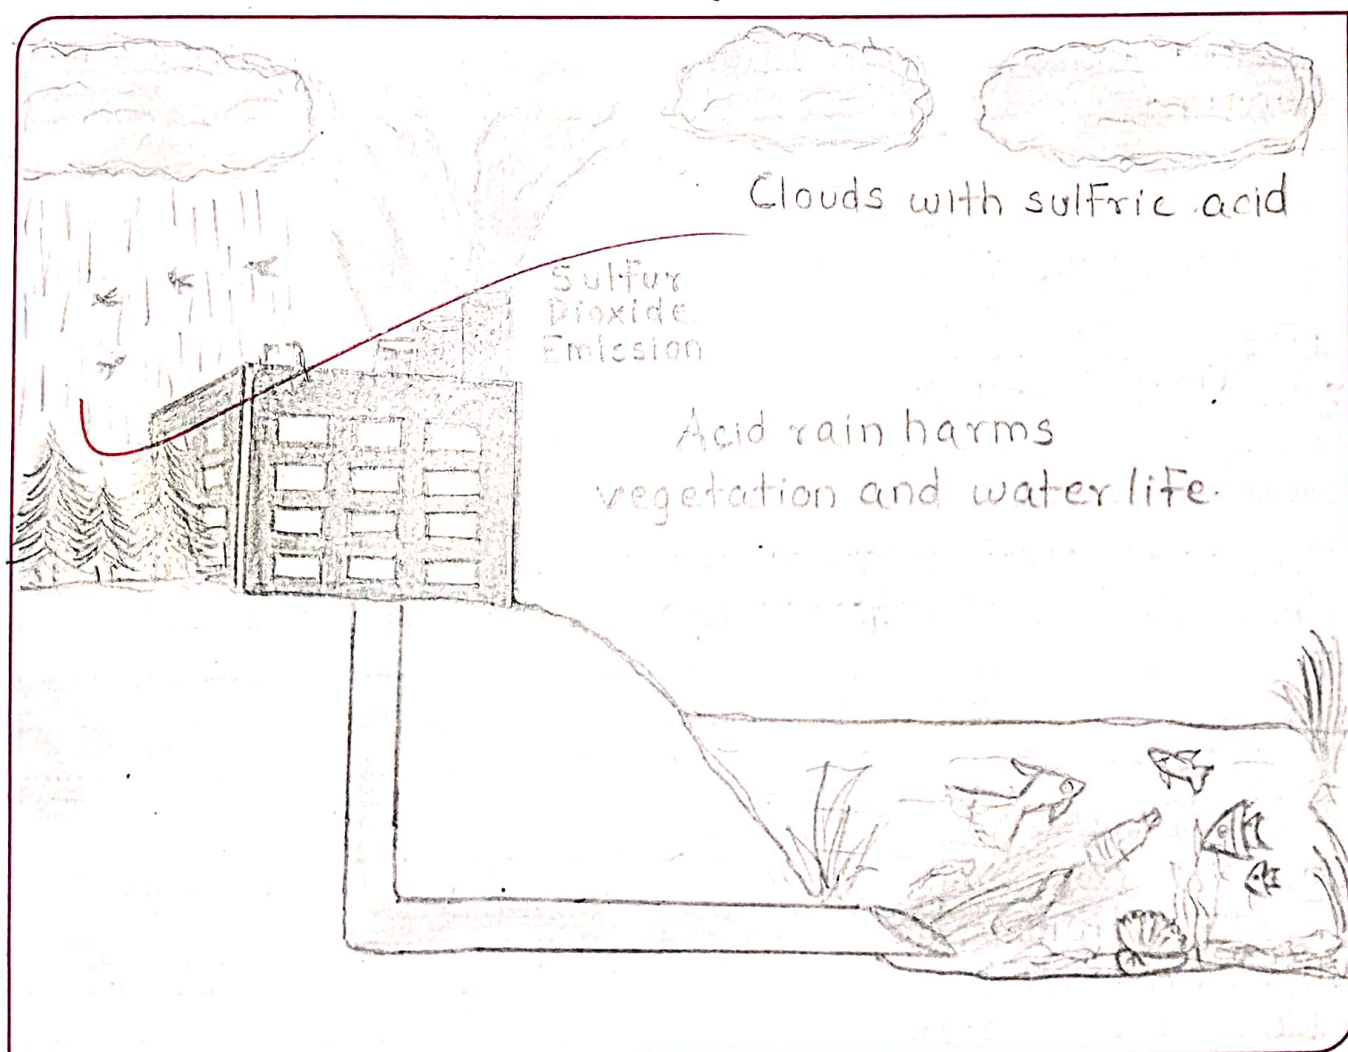 Clouds with sulfric acid
Sulfur
Dioxide
Emission
Acid rain harms
vegetation and water life.